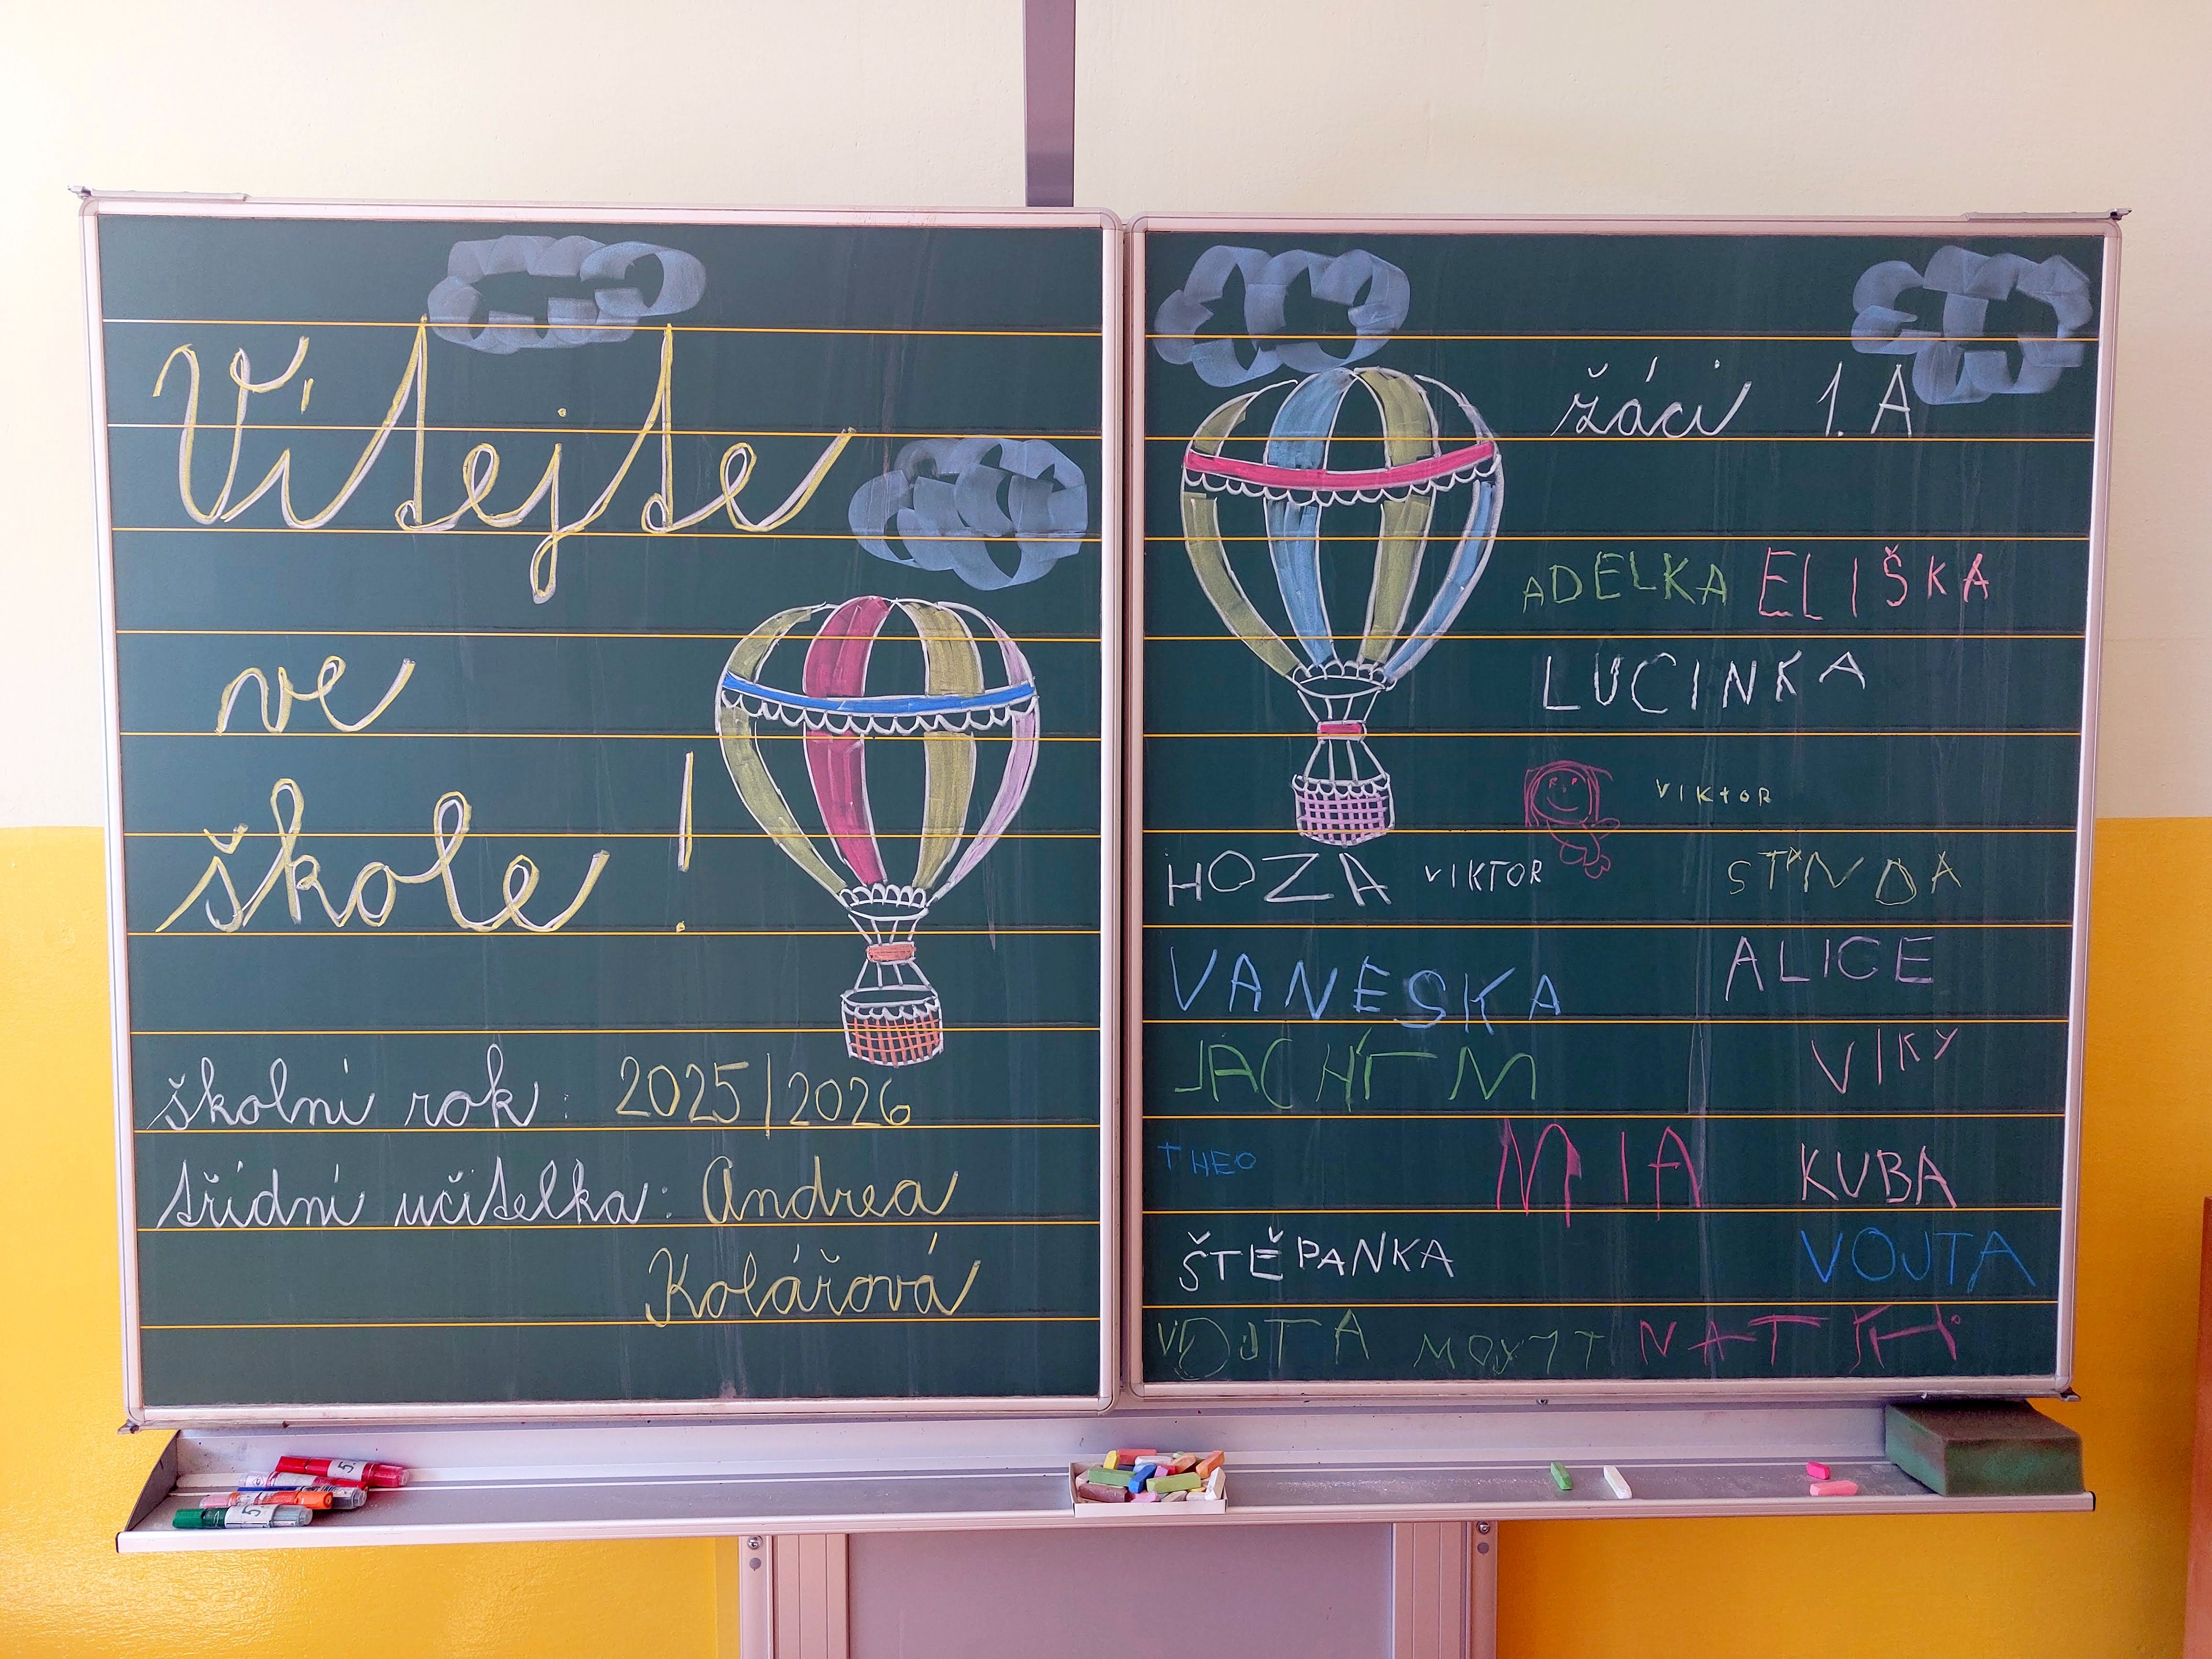 Vítejte
ve
škole!
školní rok: 2025/2026
třídní učitelka: Andrea
Kolářová
žáci 1.A
ADELKA ELIŠKA
LUCINKA
VIKTOR
HOZA VIKTOR STANDA
VANESKA ALICE
JÁCHYM VIKY
THEO MIA KUBA
ŠTĚPANKA VOJTA
VOJTA NAT
5.
5.